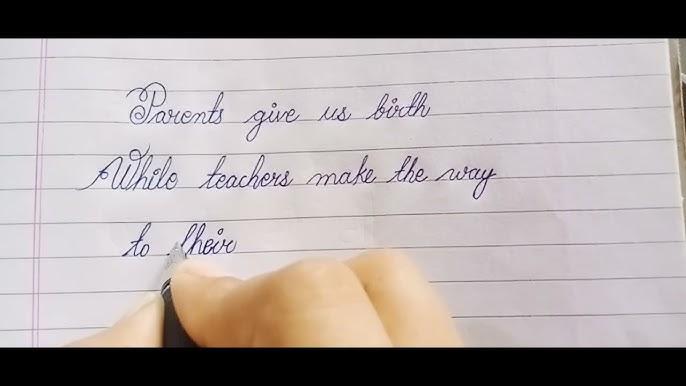 Parents give us birth
While teachers make the way
to their